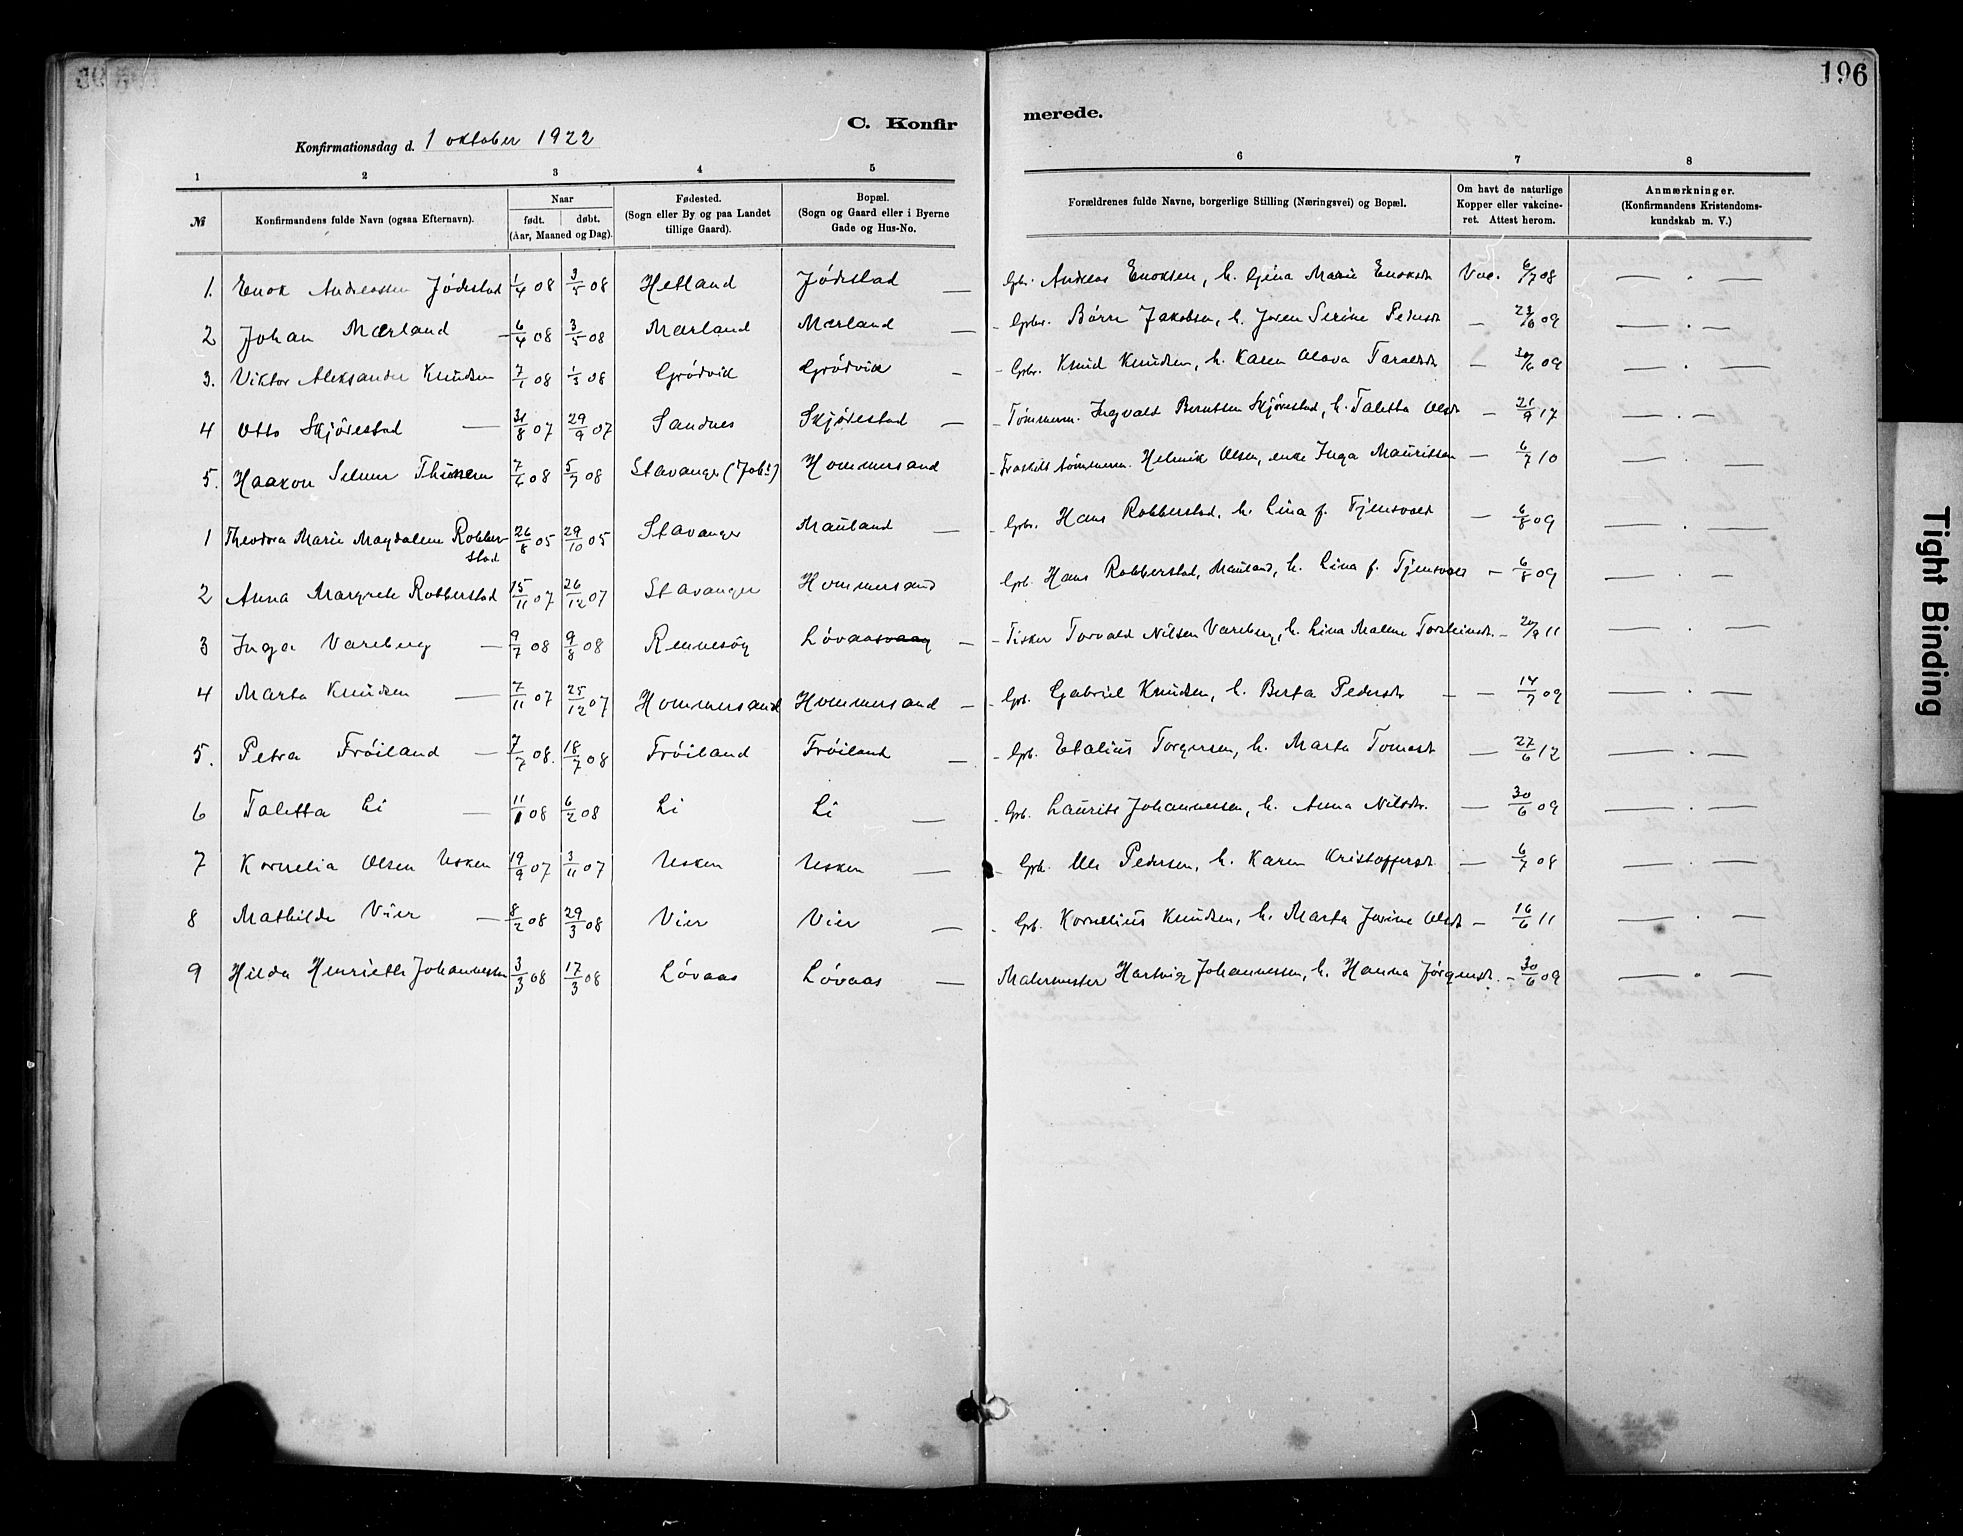 196
C. Konfir merede.
Konfirmationsdag d. 1 oktober 1922
1 2 3 4 5 6 7 8
№ Konfirmandens fulde Navn (ogsaa Efternavn). Naar født. døbt. (Aar, Maaned og Dag). Fødested. (Sogn eller By og paa Landet tillige Gaard). Bopæl. (Sogn og Gaard eller i Byerne Gade og Hus-No. Forældrenes fulde Navne, borgerlige Stilling (Næringsvei) og Bopæl. Om havt de naturlige Kopper eller vakcineret. Attest herom. Anmærkninger. (Konfirmandens Kristendomskundskab m. V.)
1. Enok Andreassen Jødestad 1/4 08 3/5 08 Hetland Jødestad — Gbr. Andreas Enoksen, h. Gina Marie Enoksdr Vac. 6/7 08 — . —
2 Johan Mærland — 6/4 08 3/5 08 Mærland Mærland — - Gbr. Børre Jakobsen, h. Joren Serine Pedersdr — 23/6 09 — . —
3. Viktor Aleksander Knudsen 7/1 08 1/3 08 Grødvik Grødvik — - Gbr. Knud Knudsen, h. Karen Olava Taraldsdr — 30/6 09 — . —
4 Otto Skjørestad — 31/8 07 29/9 07 Sandnes Skjørestad — - Tømmerm. Ingvald Berntsen Skjørestad, h. Taletta Olsdr — 21/9 17 — . —
5. Haakon Selmer Thunem 7/6 08 5/7 08 Stavanger (Joh.) Hommersand - Fraskilt tømmerm. Helmik Olsen, enke Inga Mauritsen — 6/7 10 — . —
1 Theodora Marie Magdalene Robberstad 26/8 05 29/10 05 Stavanger Mauland — - Gbr. Hans Robberstad, h. Lina f. Tjensvold — 6/8 09 — . —
2 Anna Margrete Robberstad 15/11 07 26/12 07 Stavanger Hommersand Gb. Hans Robberstad, Mauland, h. Lina f. Tjensvold — 6/8 09 — . —
3 Inga Vareberg — 9/7 08 9/8 08 Rennesøy Løvaasvaag — - Fisker Torvald Nilsen Vareberg, h. Lina Malene Torsteinsdr. — 20/9 11 — . —
4 Marta Knudsen — 7/11 07 25/12 07 Hommersand Hommersand — - Gb. Gabriel Knudsen, h. Berta Pedersdr — — 14/7 09 — . —
5. Petra Frøiland — 7/7 08. 18/7 08 Frøiland Frøiland — - Gb. Edalius Torgersen, h. Marta Tomasdr — 27/6 12 — . —
6 Taletta Li — 11/1 08 6/2 08 Li Li — - Gb. Laurits Johannessen, h. Anna Nilsdr. — 30/6 09 — . —
7 Kornelia Olsen Usken 19/9 07 3/11 07 Usken Usken — - Gb. Ole Pedersen, h. Karen Kristoffersdr — 6/7 08 — . —
8 Mathilde Vier — 8/2 08 29/3 08 Vier Vier — - Gb. Kornelius Knudsen, h. Marta Jorine Olsdr — 16/6 11 — . —
9 Hilda Henriette Johannessen 3/3 08 17/3 08 Løvaas Løvaas — Malermester Hartvig Johannessen, h. Hanna Jørgensdr. — 30/6 09 — . —
Tight Binding